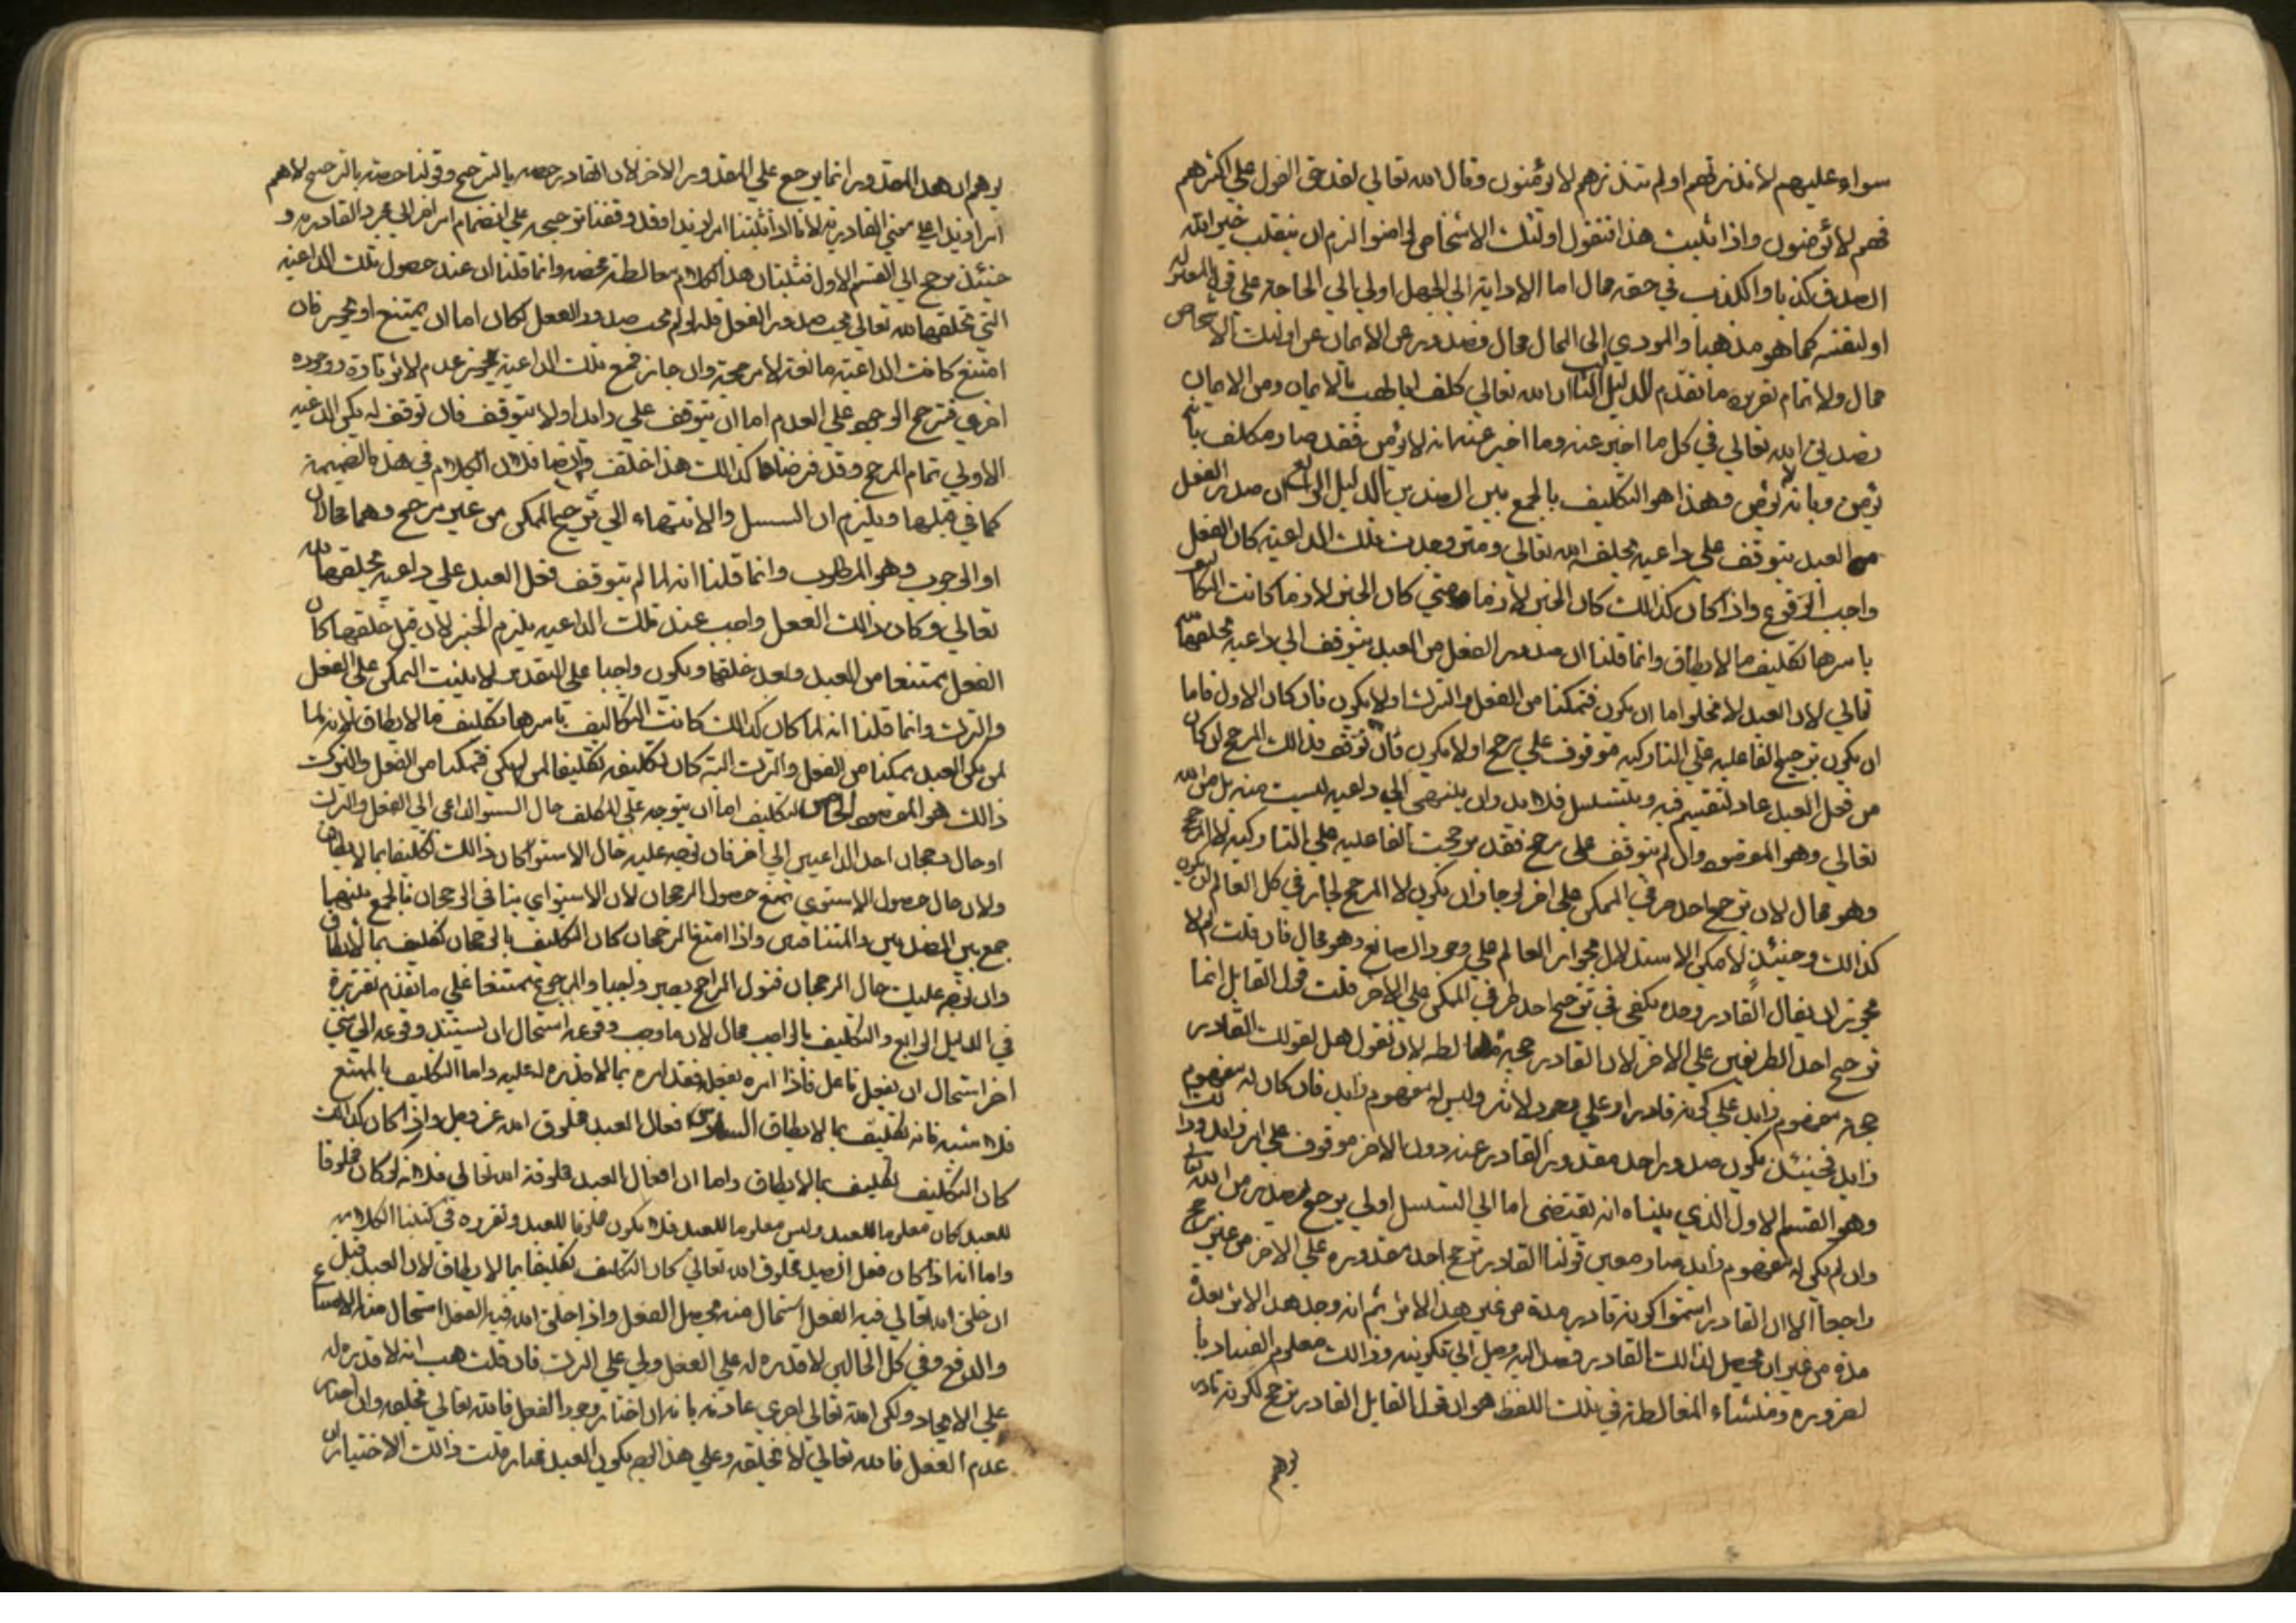 سواء عليهم لانذرتهم او لم تنذرهم لا يؤمنون وقال الله تعالي لقد حق القول علي اكثرهم
فهم لا يؤمنون واذا ثبت هذا فنقول اولئك الاشخاص لو امنوا لزم ان ينقلب خبر الله
الصدق كذبا والكذب في حقه محال اما الاداية الي الجهل اولي الي الحاجة علي قول المعتزلة
او لنفسه كما هو مذهبنا والمودي الي المحال محال فصدور عن الايمان عن اولئك الاشخاص
محال ولا تمام تقريره ما تقدم الدليل الثالث ان الله تعالي كلف ابا لهب بالايمان ومن الايمان
تصديق الله تعالي في كل ما اخبر عنه وما اخبر عنه انه لا يؤمن فقد صار مكلف بان
يؤمن وبانه لا يؤمن وهذا هو التكليف بالجمع بين الضدين الدليل الرابع ان صدر الفعل
من العبد يتوقف علي داعية يخلقه الله تعالي ومتي وجدت تلك الداعية كان الفعل
واجب الوقوع واذا كان كذالك كان الجبر لازما ومتي كان الجبر لازما كانت التكاليف
باسرها تكليف ما لا يطاق وانما قلنا ان صدور الفعل من العبد يتوقف الي داعية يخلقها الله
تعالي لان العبد لا يخلو اما ان يكون متمكنا من الفعل والترك او لا يكون فان كان الاول فاما
ان يكون ترجيح الفاعليه علي التاركيه موقوف علي مرجح او لا يكون فان توقف فذالك المرجح لو كان
من فعل العبد عاد لتقسيم فيه ويتسلسل فلا بد وان ينتهي الي داعيه ليست منه بل من الله
تعالي وهو المقصود وان لم يتوقف علي مرجح فقد ترجحت الفاعليه علي التاركيه لا لمرجح
وهو محال لان ترجح احد طرفي الممكن علي اخر لو جاز ان يكون لا المرجح لجاز في كل العالم ان يكون
كذالك وحينئذ لا يمكن الاستدلال بجواز العالم علي وجود الصانع وهو محال فان قلت لم لا
يجوز ان يقال القادر وحده يكفي في ترجيح احد طرفي الممكن علي الاخر قلت قول القايل انما
ترجيح احد الطرفين علي الاخر لان القادر رجحه مغالطه لان نقول هل لقولك القادر
رجحه مفهوم زايد علي كونه قادرا وعلي وجود لاثر وليس له مفهوم زايد فان كان له مفهوم
زايد فحينئذ يكون صدور احد مقدور القادر عنه دون الاخر موقوف علي امر زايد وذالك
وهو القسم لاول الذي بيناه انه يقتضي اما الي التسلسل اولي يرجع من الله تعالي
وان لم يكن له مفهوم زايد صار معني قولنا القادر ترجح احد مقدوره علي الاخر من غير مرجح
راجعا الا ان القادر استمر كونه قادر مدة من غير هذا الاثر ثم انه وجد هذا الاثر بعد
مدة من غير ان يحصل لذالك القادر قصد اليه وميل الي تكوينه وذالك معلوم الفساد با
لضروره ومنشاء المغالطه في تلك اللفظ هو ان قول القايل القادر ترجح لكونه قادر
يوهم
يوهم ان هذا المقدور انما يرجح علي المقدور الاخر لان القادر خصه بالترجيح وقولنا خصه بالترجيح لا يوهم
امرا زيدا علي محض القادرية لانا اذا اثبتنا امر زيدا فقد وقفنا ترجيح علي انضمام امر اخر الي مجرد القادريه و
حينئذ يرجع الي القسم الاول فثبت ان هذا الكلام مغالطة محضه وانما قلنا ان عند حصول تلك الداعيه
التي يخلقها الله تعالي يجب صدور الفعل فلو لم يجب صدور الفعل لكان اما ان يمتنع او يجوز فان
امتنع كانت الداعية مانعة لا مرجحة وان جاز فمع تلك الداعية يجوز عدم لاثر تارة ووجوده
اخري فترجح الوجود علي العدم اما ان يتوقف علي زايد اولا يتوقف فان توقف لم يكن الداعيه
الاولي تمام المرجح وقد فرضناها كذالك هذا خلف وايضا فلان الكلام في هذه الضميمة
كما في قبلها ويلزم ان التسلسل والانتهاء الي ترجيح الممكن من غير مرجح وهما محالان
او الوجوب وهو المطلوب وانما قلنا انه لما لم يتوقف فعل العبد علي داعية يخلقها الله
تعالي وكان ذالك الفعل واجب عند تلك الداعيه يلزم الجبر لان قبل خلقها كان
الفعل يمتنعا من العبد وبعد خلقها ويكون واجبا علي التقدير لا يثبت التمكن علي الفعل
والترك وانما قلنا انه لما كان كذالك كانت التكاليف باسرها تكليف ما لا يطاق لانه لما
لم يكن العبد متمكنا من الفعل والترك البتة كان تكليفه تكليفا لمن لم يكن متمكنا من الفعل والترك
ذالك هو المقصود الخامس التكليف اما ان يتوجه علي المكلف حال استوا الداعي الي الفعل والترك
او حال رجحان احد الداعيين الي اخر فان توجه عليه حال الاستوا كان ذالك تكليفا بما لا يطاق
ولان حال حصول الاستوي يمتنع حصول الرجحان لان الاستواي ينافي الرجحان فالجمع بينهما
جمع بين الضدين والمتنافين واذا امتنع الرجحان كان التكليف بالرجحان تكليف بما لا يطاق
وان توجه عليك حال الرجحان فنقول الراجح يصير واجبا والمرجوح يمتنعا علي ما تقدم تقريره
في الدليل الرابع والتكليف بالواجب محال لان ما وجب وقوعه استحال ان يستند وقوعه الي شي
اخر استحال ان يفعل فاعل فاذا امره بفعله فقد امره بما لا قدره له عليه واما التكليف بالممتنع
فلا شبه فانه تكليف بما لا يطاق السادس افعال العبد مخلوق الله عز وجل واذا كان كذالك
كان التكليف تكليف بما لا يطاق واما ان افعال العبد مخلوقة الله تعالي فلانه لو كان مخلوقا
للعبد كان معلوما للعبد وليس معلوما للعبد فلا يكون مخلوقا للعبد وتقريره في كتبنا الكلاميه
واما انه اذا كان فعل العبد مخلوق الله تعالي كان التكليف تكليفا بما لا يطاق لان العبد قبل
ان خلق الله تعالي فيه الفعل استحال منه تحصيل الفعل واذا خلق الله فيه الفعل استحال منه الامتناع
والدفع وفي كل الحالين لا قدره له علي الفعل ولي علي الترك فان قلت هب انه لا قدره له
علي الايجاد ولكن الله تعالي اجري عادته بانه ان اختار وجود الفعل فالله تعالي يخلقه وان اختار
عدم الفعل فالله تعالي لا يخلقه وعلي هذا الوجه يكون العبد مختار قلت ذالك الاختيار ان